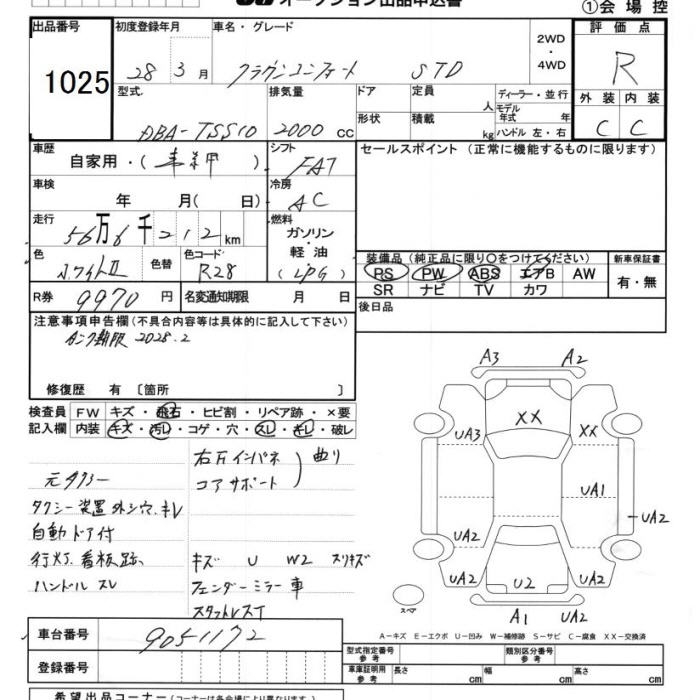 オークション出品申込書
①会場控
出品番号 1025
初度登録年月 28 3月
車名・グレード クラウンコンフォート STD
2WD・4WD
評価点 R
外装 C 内装 C
型式 DBA-TSS10
排気量 2000 cc
ドア 形状
定員 人 積載 kg
ディーラー・並行
モデル年式 年
ハンドル 左・右
車歴 自家用・( )
シフト FAT
セールスポイント(正常に機能するものに限ります)
車検 年 月(日)
冷房 AC
走行 56万6千212km
燃料 ガソリン・軽油 (LPG)
色 ホワイトII 色替 色コード R28
装備品(純正品に限り〇をつけてください)
PS PW ABS エアB AW
SR ナビ TV カワ
新車保証書 有・無
R券 9970円 名変通知期限 月 日
後日品
注意事項申告欄(不具合内容等は具体的に記入して下さい)
タンク期限 2028.2
修復歴 有 〔箇所 〕
検査員記入欄
FW キズ・飛石・ヒビ割・リペア跡・×要
内装 キズ・汚レ・コゲ・穴・スレ・キレ・破レ
元タクシー
タクシー装置外シ穴.キレ
自動ドア付
行灯.看板跡
ハンドルスレ
右方インパネ
コアサポート
曲り
キズ U W2 スリキズ
フェンダーミラー車
スタットレスT
A3 A2
XX
UA3 XX
UA1
UA2
UA2 UA2
UA2 U2 UA2
A1 UA2
スペア
A－キズ E－エクボ U－凹み W－補修跡 S－サビ C－腐食 XX－交換済
車台番号 9051172
登録番号
型式指定番号 参考 類別区分番号 参考
車庫証明用 参考 長さ cm 幅 cm 高さ cm
希望出品コーナー(コーナーは各会場により異なります)